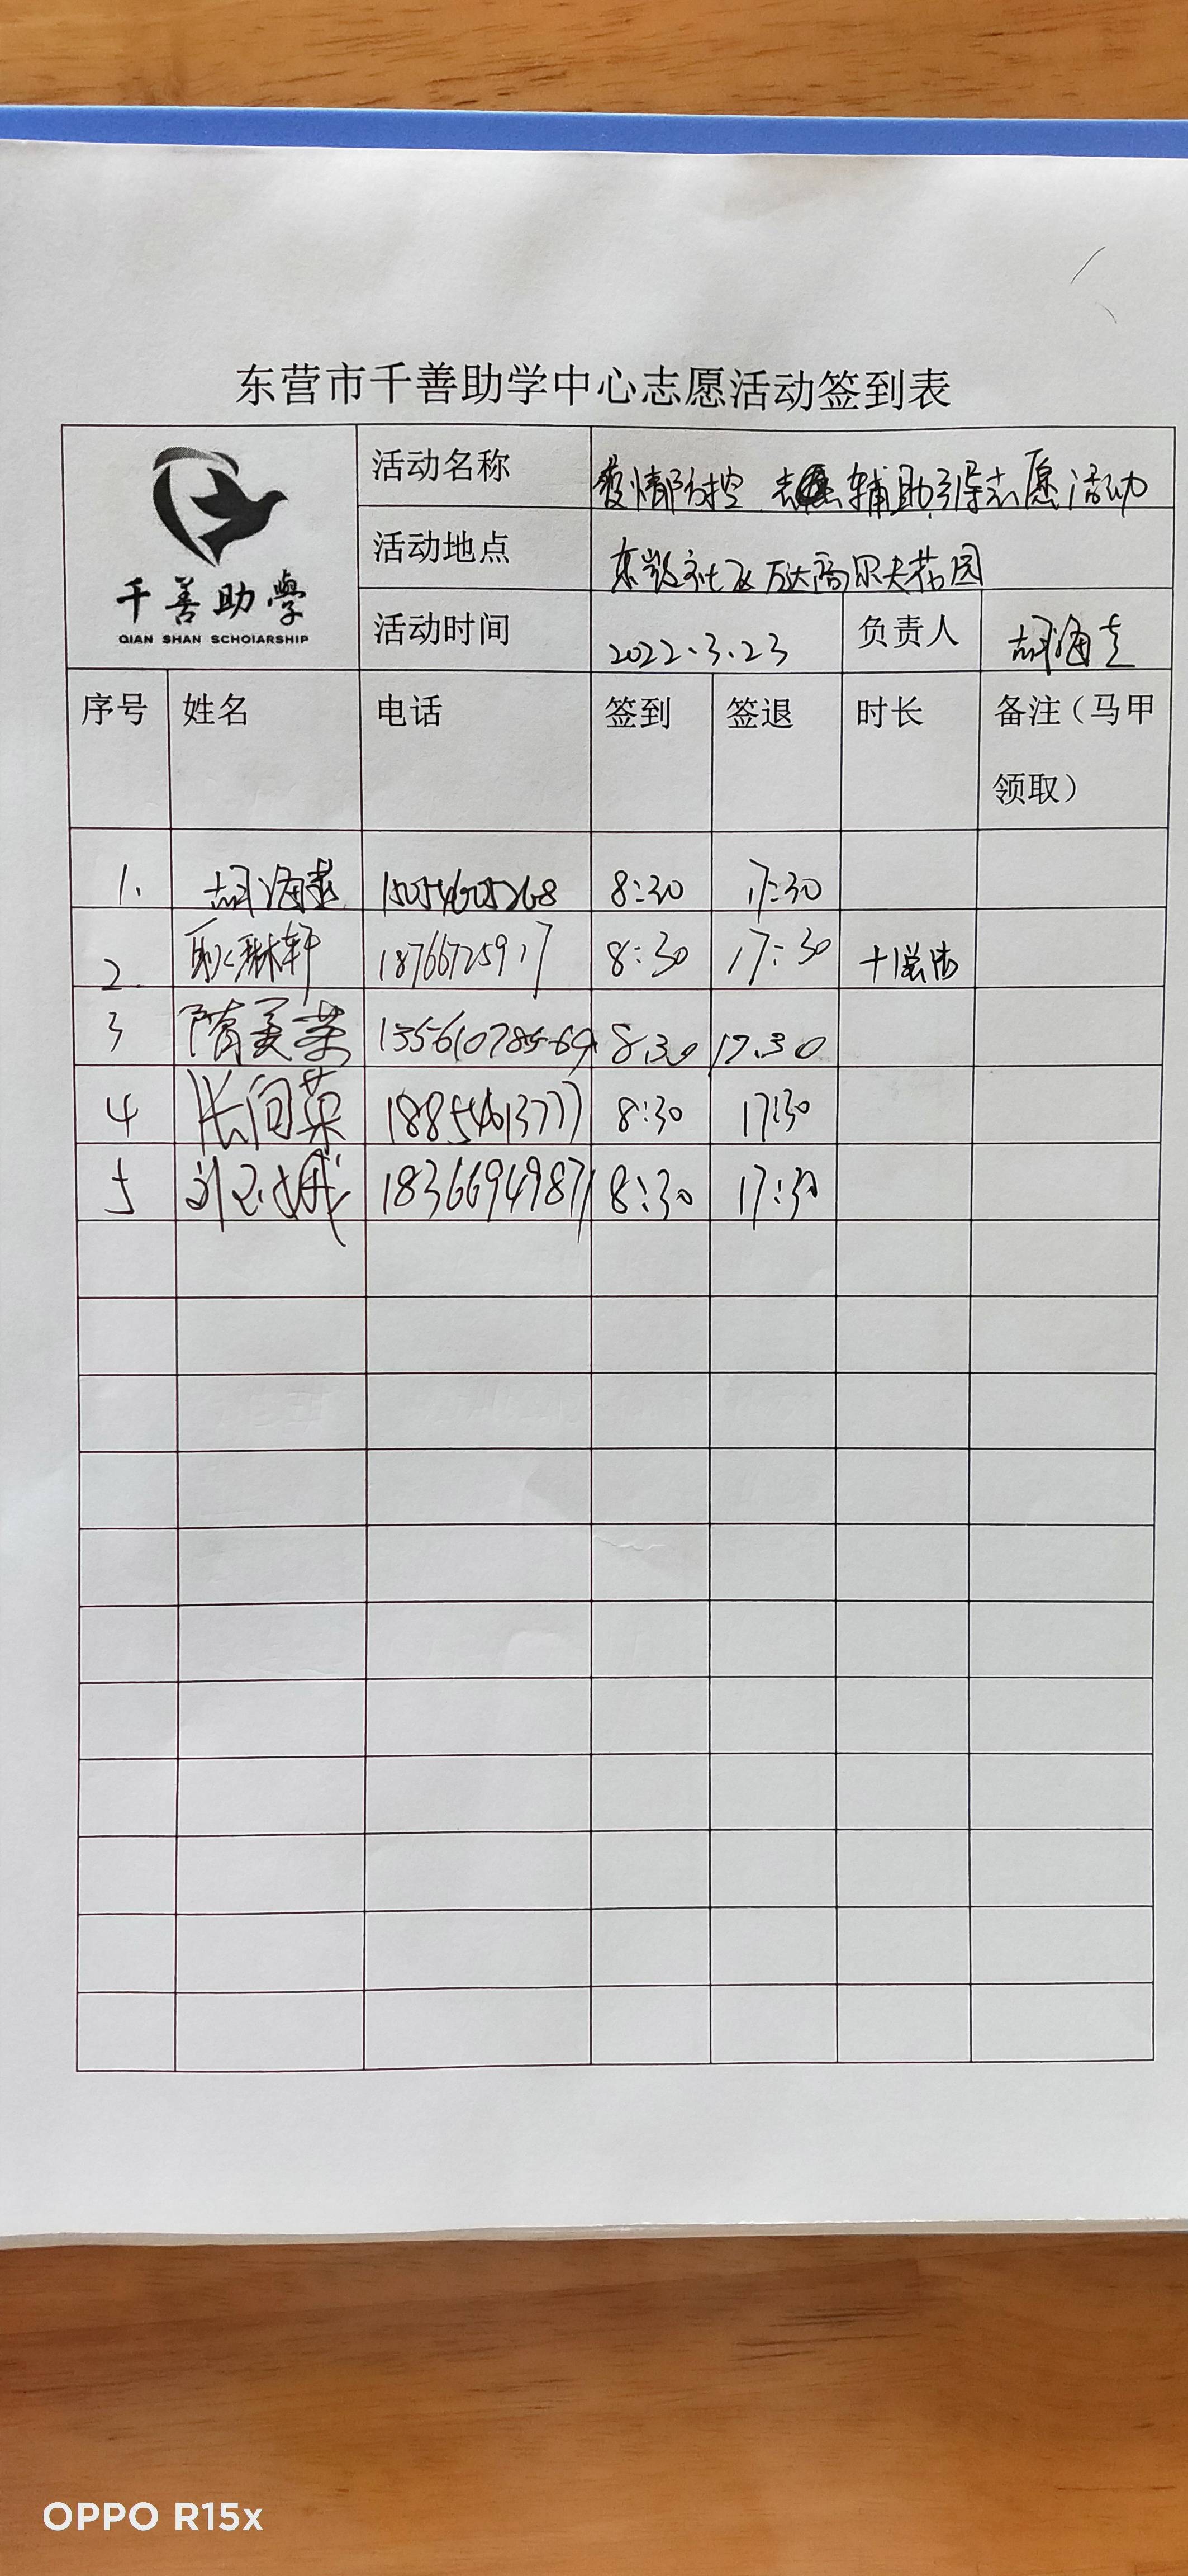 东营市千善助学中心志愿活动签到表
千善助學
QIAN SHAN SCHOIARSHIP
活动名称 疫情防控 辅助引导志愿活动
活动地点 社区万达高尔夫花园
活动时间 2022.3.23 负责人 胡海
序号 姓名 电话 签到 签退 时长 备注（马甲
领取）
1. 胡海 15054605268 8:30 17:30
2. 耿琳轩 18766725917 8:30 17:30
3 隋美荣 8:30 17:30
4 张向英 18854613777 8:30 17:30
5 刘玉娥 18366949871 8:30 17:30
OPPO R15x